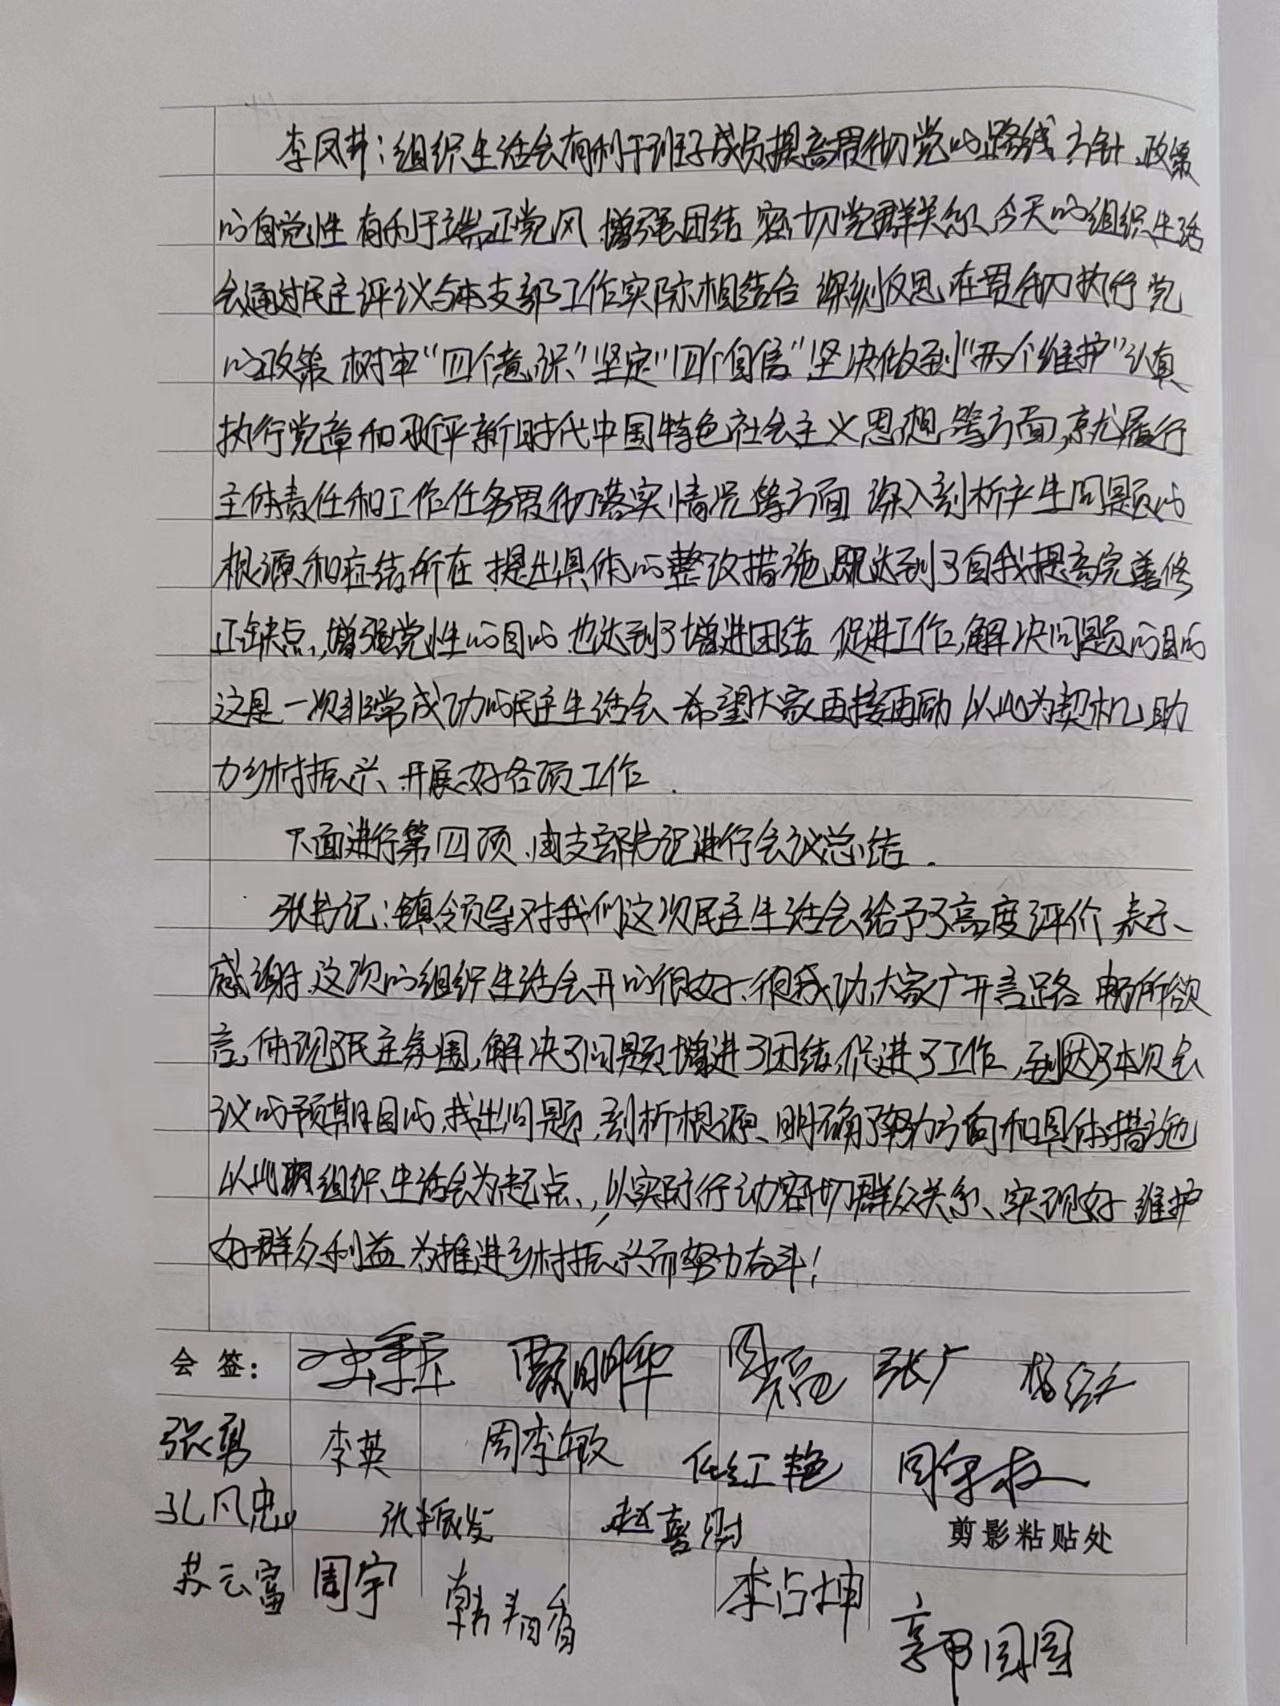 李凤井：组织生活会有利于班子成员提高贯彻党的路线方针、政策
的自觉性 有利于端正党风 增强团结 密切党群关系、今天的组织生活
会通过民主评议与本支部工作实际相结合 深刻反思 在贯彻执行党
的政策 树牢“四个意识”坚定“四个自信”坚决做到“两个维护”认真
执行党章和习近平新时代中国特色社会主义思想等方面，就履行
主体责任和工作任务贯彻落实情况等方面 深入剖析产生问题的
根源和症结所在 提出具体的整改措施 既达到了自我提高完善修
正缺点，增强党性的目的 也达到了增进团结 促进工作，解决问题的目的
这是一次非常成功的民主生活会 希望大家再接再励 以此为契机 助
力乡村振兴、开展好各项工作.
下面进行第四项、由支部书记进行会议总结.
张书记：镇领导对我们这次民主生活会给予了高度评价 表示、
感谢，这次的组织生活会开的很好、很成功，大家广开言路 畅所欲
言，体现了民主氛围，解决了问题 增进了团结，促进了工作，到达了本次会
议的预期目的，找出问题，剖析根源、明确了努力方向和具体措施
以此期组织生活会为起点、，以实际行动密切群众关系、实现好 维护
好群众利益 为推进乡村振兴而努力奋斗！
会签： 贾明华 张广
张勇 李英 周李敏 任红艳
孔凡忠 张振发 赵喜
剪影粘贴处
苏云富 周宇 韩 香 李占坤
郭园园